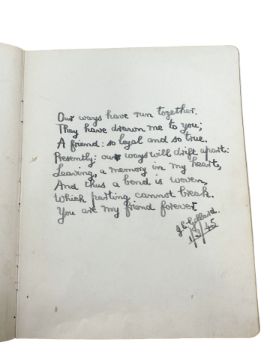 Our ways have run together.
They have drawn me to you;
A friend: so loyal and so true.
Presently: our ways will drift apart:
Leaving, a memory in my heart,
And thus a bond is woven,
Which parting cannot break.
You are my friend forever
1/5/45